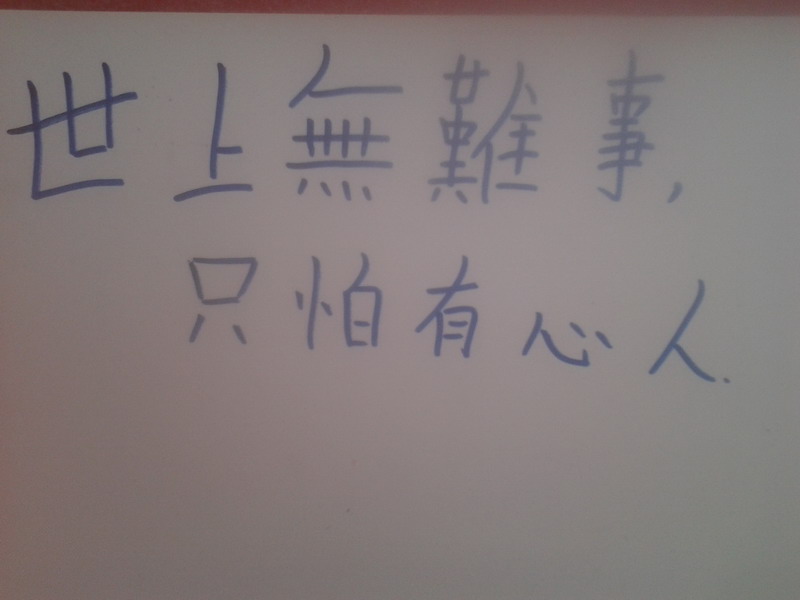 世上無難事,
只怕有心人.